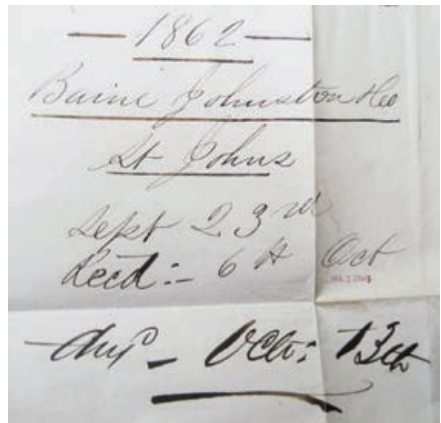 — 1862 —
Baine Johnston & Co
St Johns
Sept 23rd
Recd:- 6th Oct
Ansd - Oct: 13th